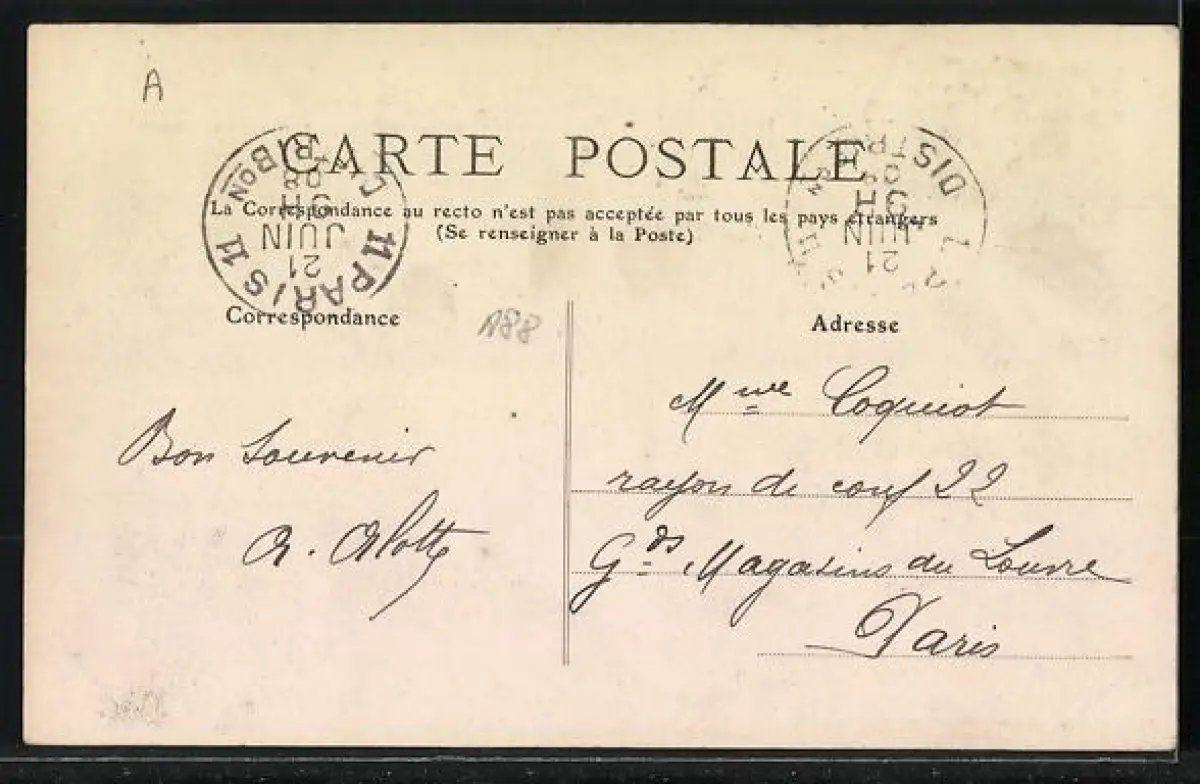 A
CARTE POSTALE
La Correspondance au recto n'est pas acceptée par tous les pays étrangers
(Se renseigner à la Poste)
PARIS 11
21
JUIN
9H
08
11
DISTR
21
JUIN
9H
08
Correspondance
A88
Adresse
Bon Souvenir
Mme Coquiot
rayon de conf 22
Gds Magasins du Louvre
Paris